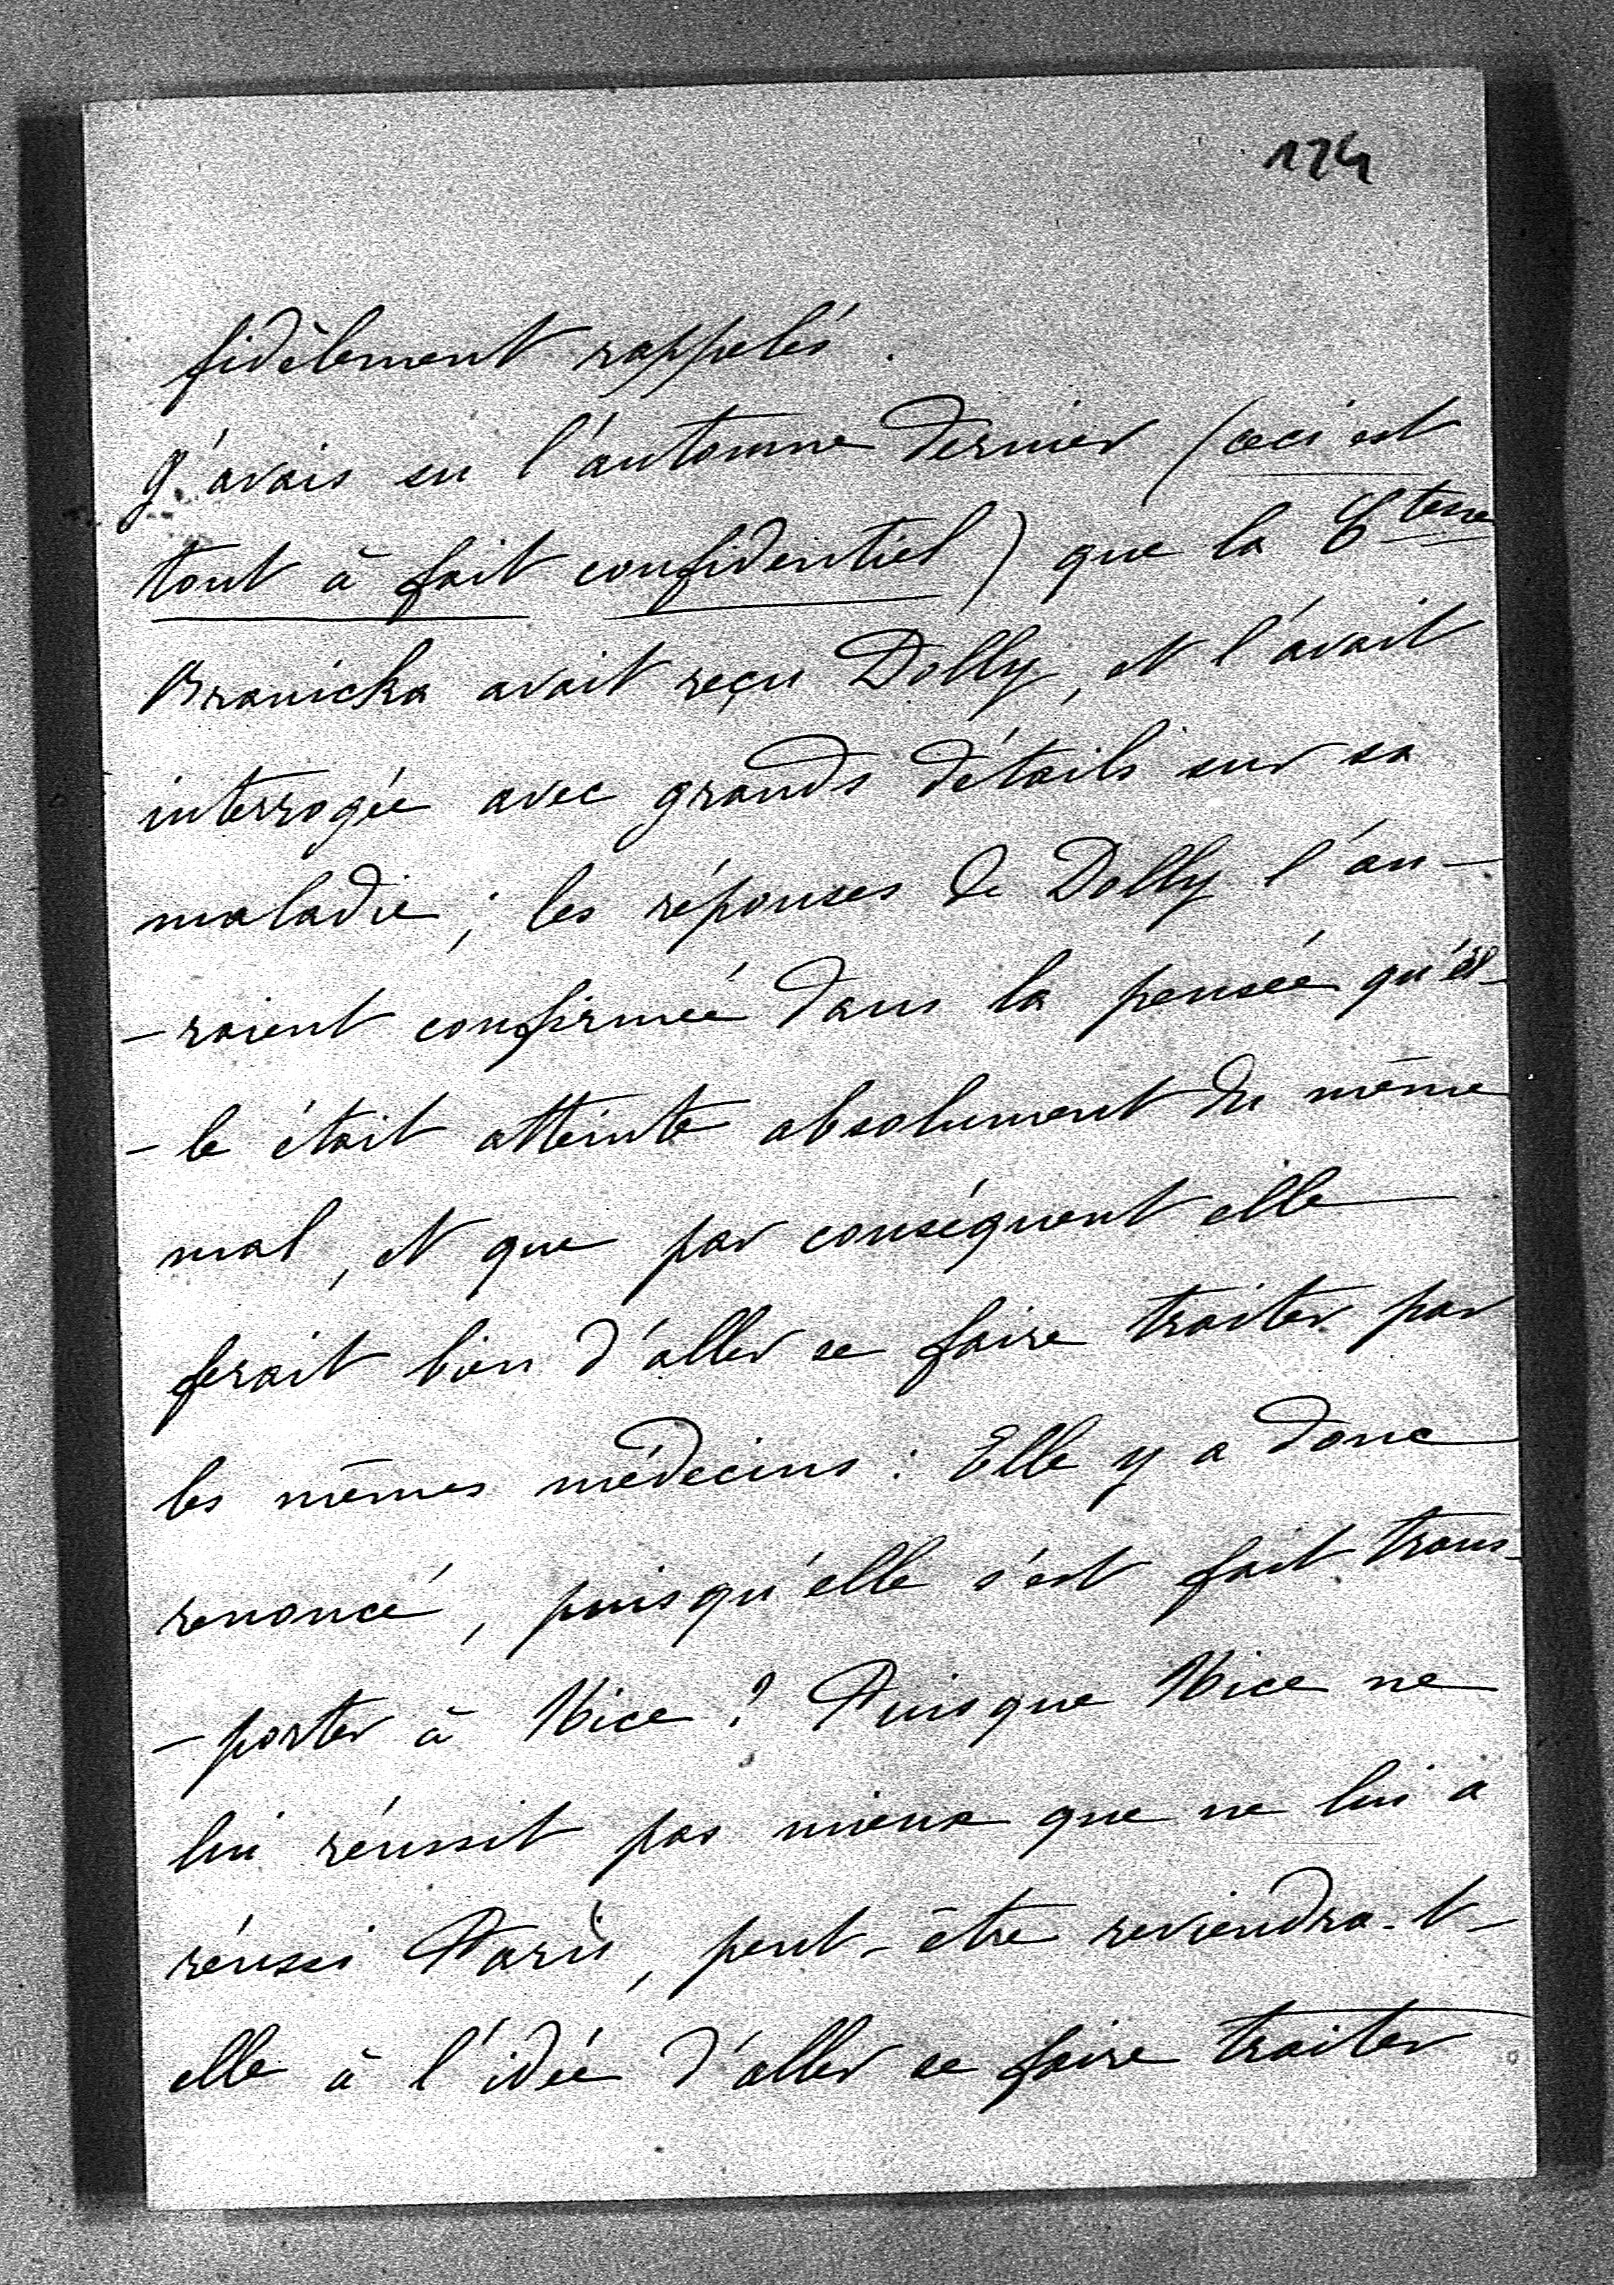 124
fidèlement rappelés.
J'avais su l'automne dernier (ceci est
tout à fait confidentiel) que la Ctesse
Branicka avait reçu Dolly, et l'avait
interrogée avec grands détails sur sa
maladie ; les réponses de Dolly l'au-
-raient confirmée dans la pensée qu'el-
-le était atteinte absolument du même
mal, et que par conséquent elle
ferait bien d'aller se faire traiter par
les mêmes médecins : Elle y a donc
renoncé, puisqu'elle s'est fait trans-
-porter à Nice ? Puisque Nice ne
lui réussit pas mieux que ne lui a
réussi Paris, peut-être reviendra-t-
elle à l'idée d'aller se faire traiter